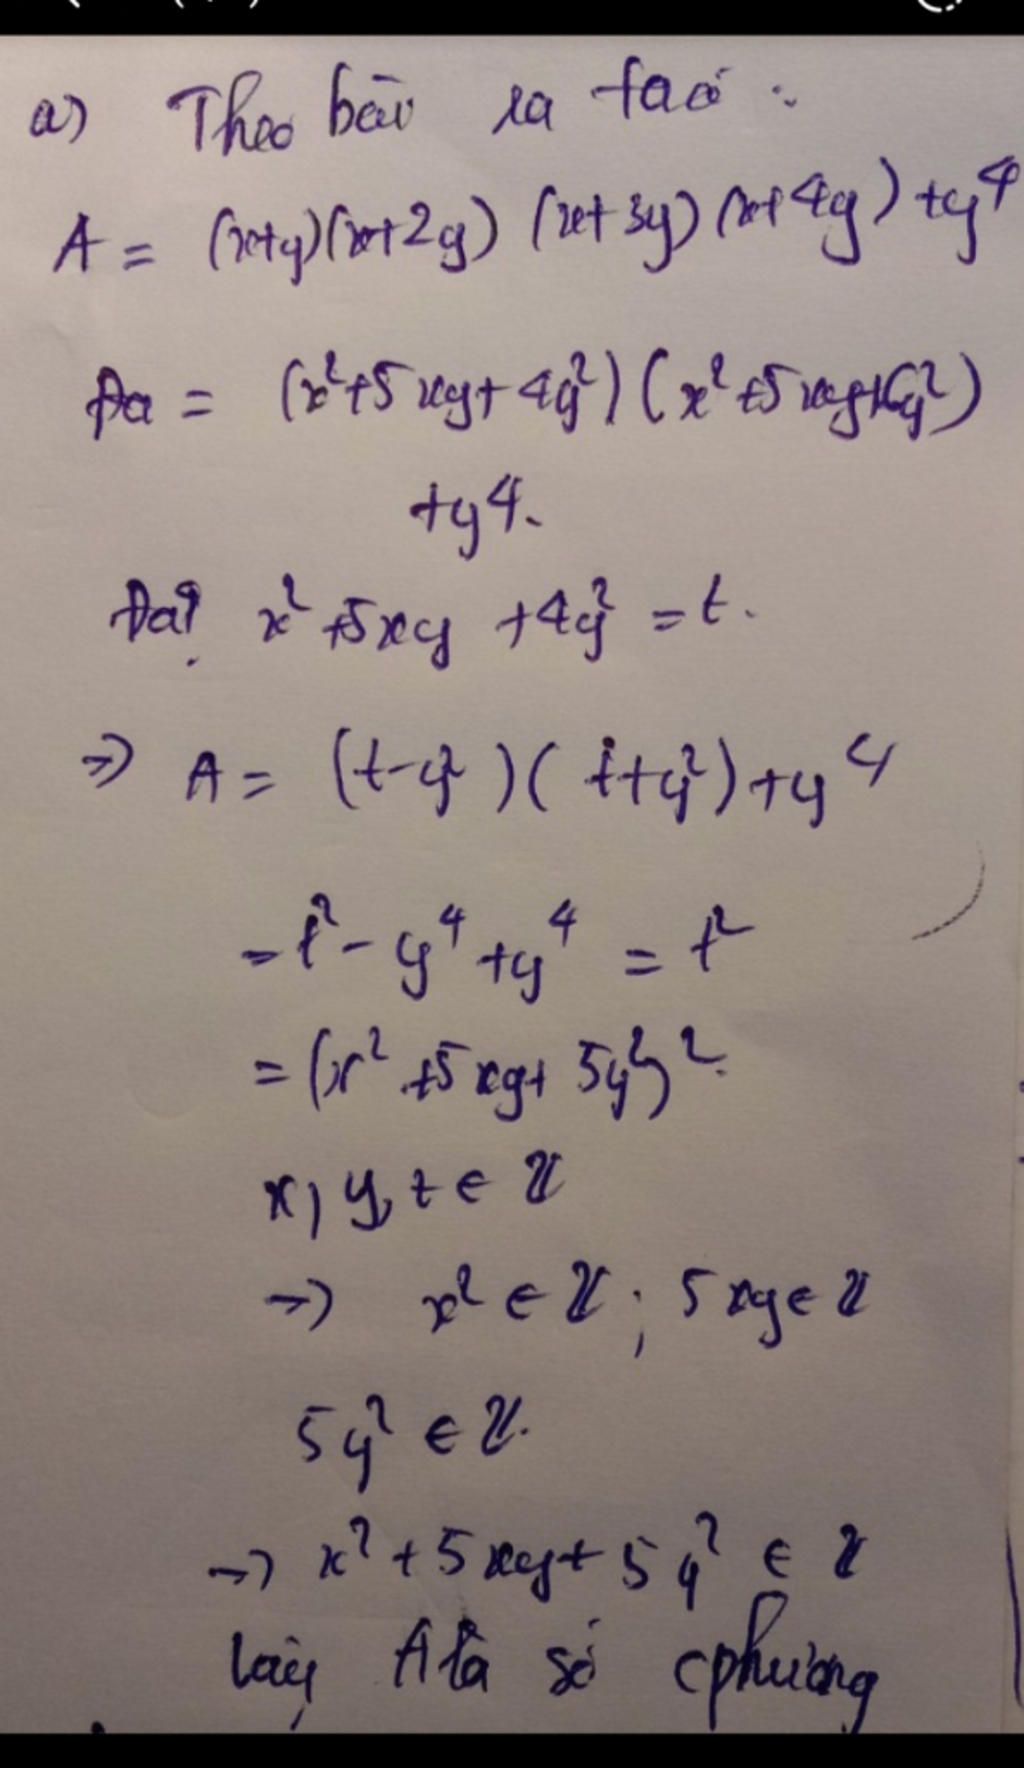 a) Theo bài ra ta có :
A = (x+y)(x+2y) (x+3y) (x+4y) +y⁴
Đa = (x²+5xy+4y²) (x²+5xy+6y²)
+y⁴.
Đặt x² +5xy +4y² = t.
=> A = (t-y²)( t+y²)+y⁴
= t² - y⁴ +y⁴ = t²
= (x² +5xy+ 5y²)².
x, y, z ∈ Z
=> x² ∈ Z ; 5xy ∈ Z
5y² ∈ Z.
=> x² + 5xy + 5y² ∈ Z
Vậy A là số cphương